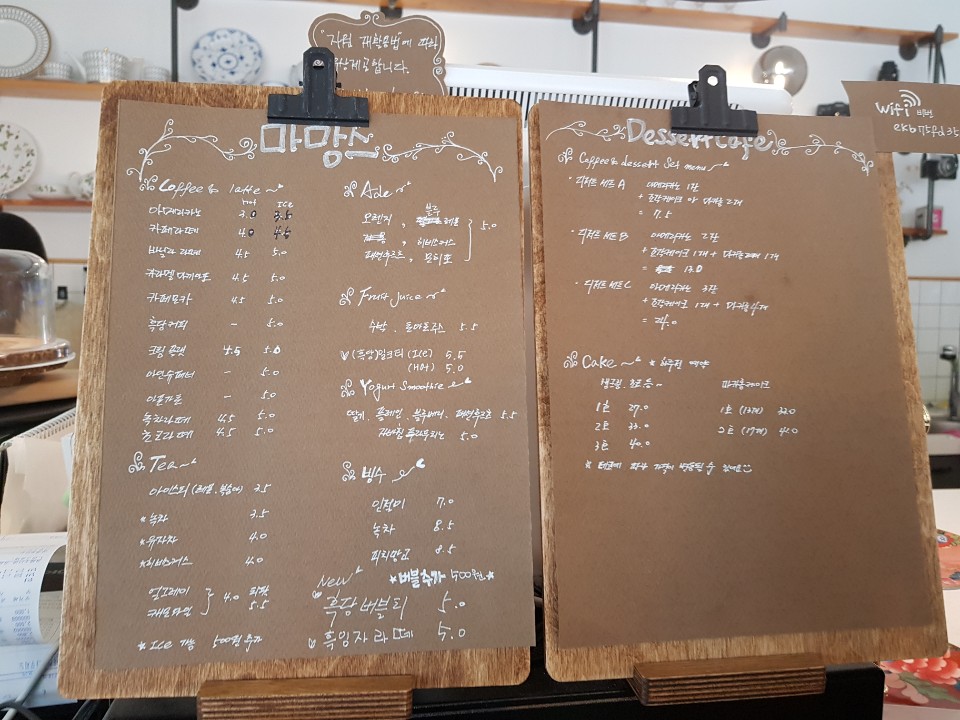 "자원 재활용법"에 따라
제공합니다.
Wifi 비번
마망스
Coffee & latte
Hot ICE
아메리카노 3.0 3.5
카페라떼 4.0 4.5
바닐라 라떼 4.5 5.0
카라멜 마키아또 4.5 5.0
카페모카 4.5 5.0
흑당커피 - 5.0
크림 4.5 5.0
아인슈페너 - 5.0
아포가토 - 5.0
녹차라떼 4.5 5.0
초코라떼 4.5 5.0
Tea
아이스티 (레몬, 복숭아) 3.5
*녹차 3.5
*유자차 4.0
*히비스커스 4.0
얼그레이
캐모마일 } 4.0 5.5
*Ice 가능 500원 추가
Ade
블루
오렌지, 레몬
, 히비스커스 5.0
패션후르츠,
Fruit Juice
수박, 토마토주스 5.5
(흑당)밀크티 (ICE) 5.5
(HOT) 5.0
Yogurt Smoothie
딸기, 플레인, 블루베리, 패션후르츠 5.5
자바칩 프라푸치노 5.0
빙수
인절미 7.0
녹차 8.5
피치망고 8.5
*버블추가 500원*
New
흑당버블티 5.0
흑임자라떼 5.0
Dessert Cafe
Coffee & dessert Set menu
· 디저트 세트 A 아메리카노 1잔
+ 조각케이크 or 마카롱 2개
= 7.5
· 디저트 세트 B 아메리카노 2잔
+ 조각케이크 1개 + 마카롱 1개
= 13.0
· 디저트 세트 C 아메리카노 3잔
+ 조각케이크 1개 + 마카롱
=
Cake * 하루전 예약
생크림, 초코 등~ 마카롱케이크
1호 27.0 1호 (13개) 32.0
2호 33.0 2호 (17개)
3호 40.0
* 따라 가격이 변동될 수 있어요